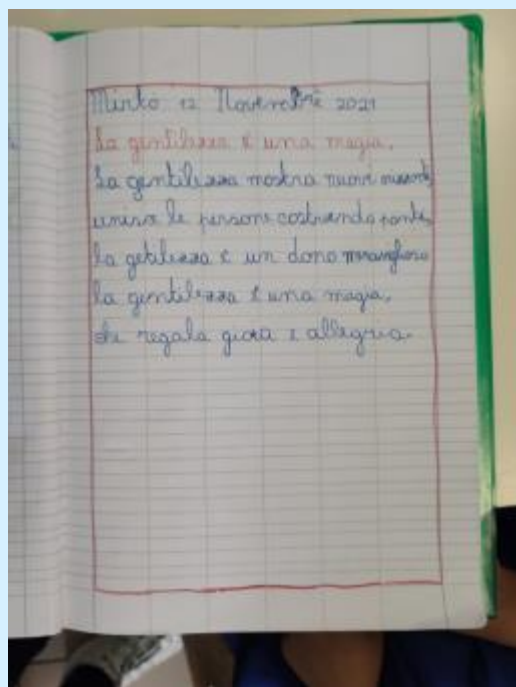 12 Novembre 2021
La gentilezza è una magia.
La gentilezza mostra nuovi
le persone costruendo ponti,
la getilezza è un dono
la gentilezza è una magia,
che regala gioia e allegria.